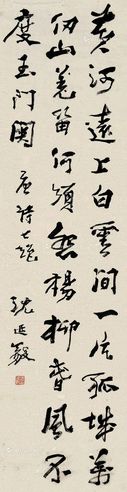 黄河遠上白雲間一片孤城萬
仞山羌笛何須怨楊柳春風不
度玉門関 唐詩七絶 沈延毅